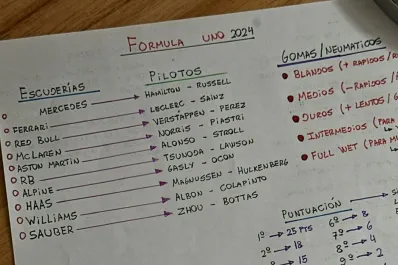 FORMULA UNO 2024
ESCUDERÍAS
MERCEDES
FERRARI
RED BULL
McLAREN
ASTON MARTIN
RB
ALPINE
HAAS
WILLIAMS
SAUBER
PILOTOS
HAMILTON - RUSSELL
LECLERC - SAINZ
VERSTAPPEN - PEREZ
NORRIS - PIASTRI
ALONSO - STROLL
TSUNODA - LAWSON
GASLY - OCON
MAGNUSSEN - HULKENBERG
ALBON - COLAPINTO
ZHOU - BOTTAS
GOMAS/NEUMATICOS
BLANDOS (+ RAPIDOS/R
MEDIOS (- RAPIDOS/
DUROS (+ LENTOS/
INTERMEDIOS (PARA
FULL WET (PARA
PUNTUACIÓN
1º → 25 PTS 6º → 8
2º → 18 7º → 6
→ 15 8º → 4
9º → 2